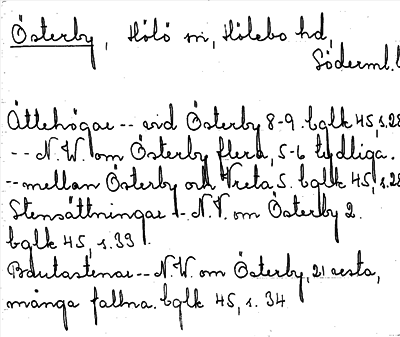 Österby, Hölö sn, Hölebo hd,
Söderml. l
Ättehögar -- vid Österby 8-9. bglk 45, s. 28
-- N.W. om Österby flera, 5-6 tydliga.
-- mellan Österby och Vreta 5. bglk 45, s. 28
Stensättningar -- N.V. om Österby 2.
bglk 45, s. 33.
Bautastenar -- N.W. om Österby, 21 resta,
många fallna. bglk 45, s. 34